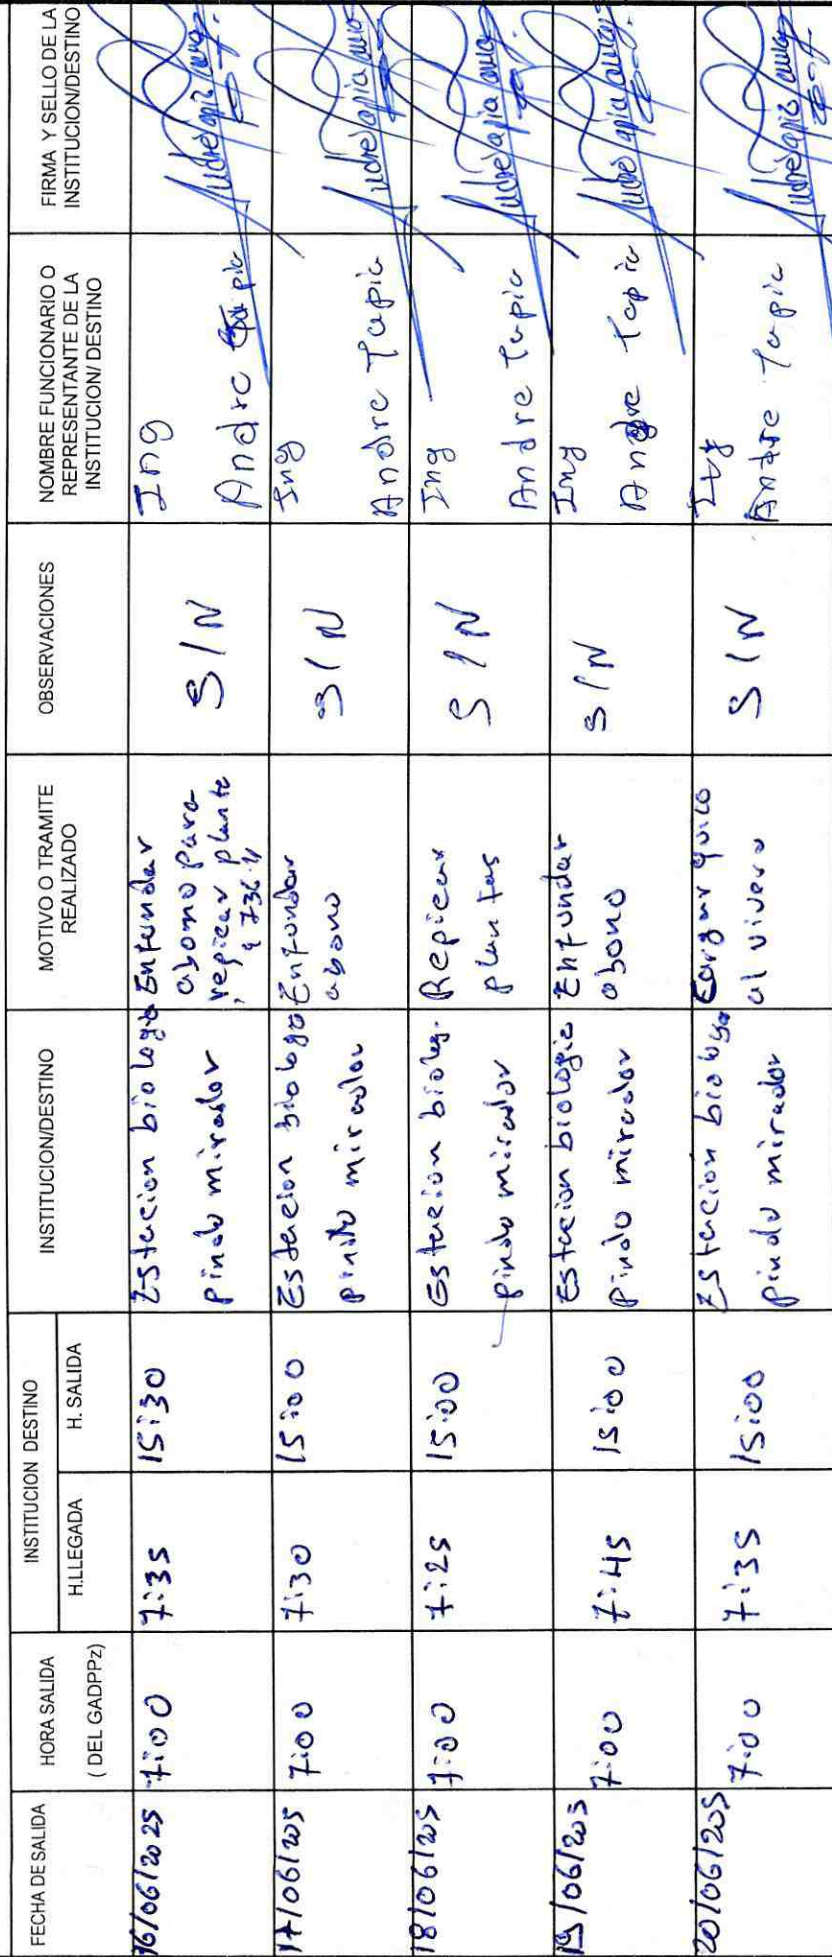 FECHA DE SALIDA
HORA SALIDA
( DEL GADPPz)
INSTITUCION DESTINO
H.LLEGADA
H. SALIDA
INSTITUCION/DESTINO
MOTIVO O TRAMITE
REALIZADO
OBSERVACIONES
NOMBRE FUNCIONARIO O
REPRESENTANTE DE LA
INSTITUCION/ DESTINO
FIRMA Y SELLO DE LA
INSTITUCION/DESTINO
16/06/2025
7:00
7:35
15:30
Estacion biologo
pindo mirador
Enfundar
abono para
repicar plante
S/N
Ing
Andre Tapia
17/06/205
7:00
7:30
15:00
Estacion biologo
pindo mirador
Enfundar
abono
S/N
Ing
Andre Tapia
18/06/205
7:00
7:25
15:00
Estacion biolog.
pindo mirador
Repicar
plantas
S/N
Ing
Andre Tapia
19/06/203
7:00
7:45
15:00
Estacion biologic
Pindo mirador
Enfundar
abono
S/N
Ing
Andre Tapia
20/06/205
7:00
7:35
15:00
Estacion biologo
pindo mirador
al vivero
S/N
Ing
Andre Tapia